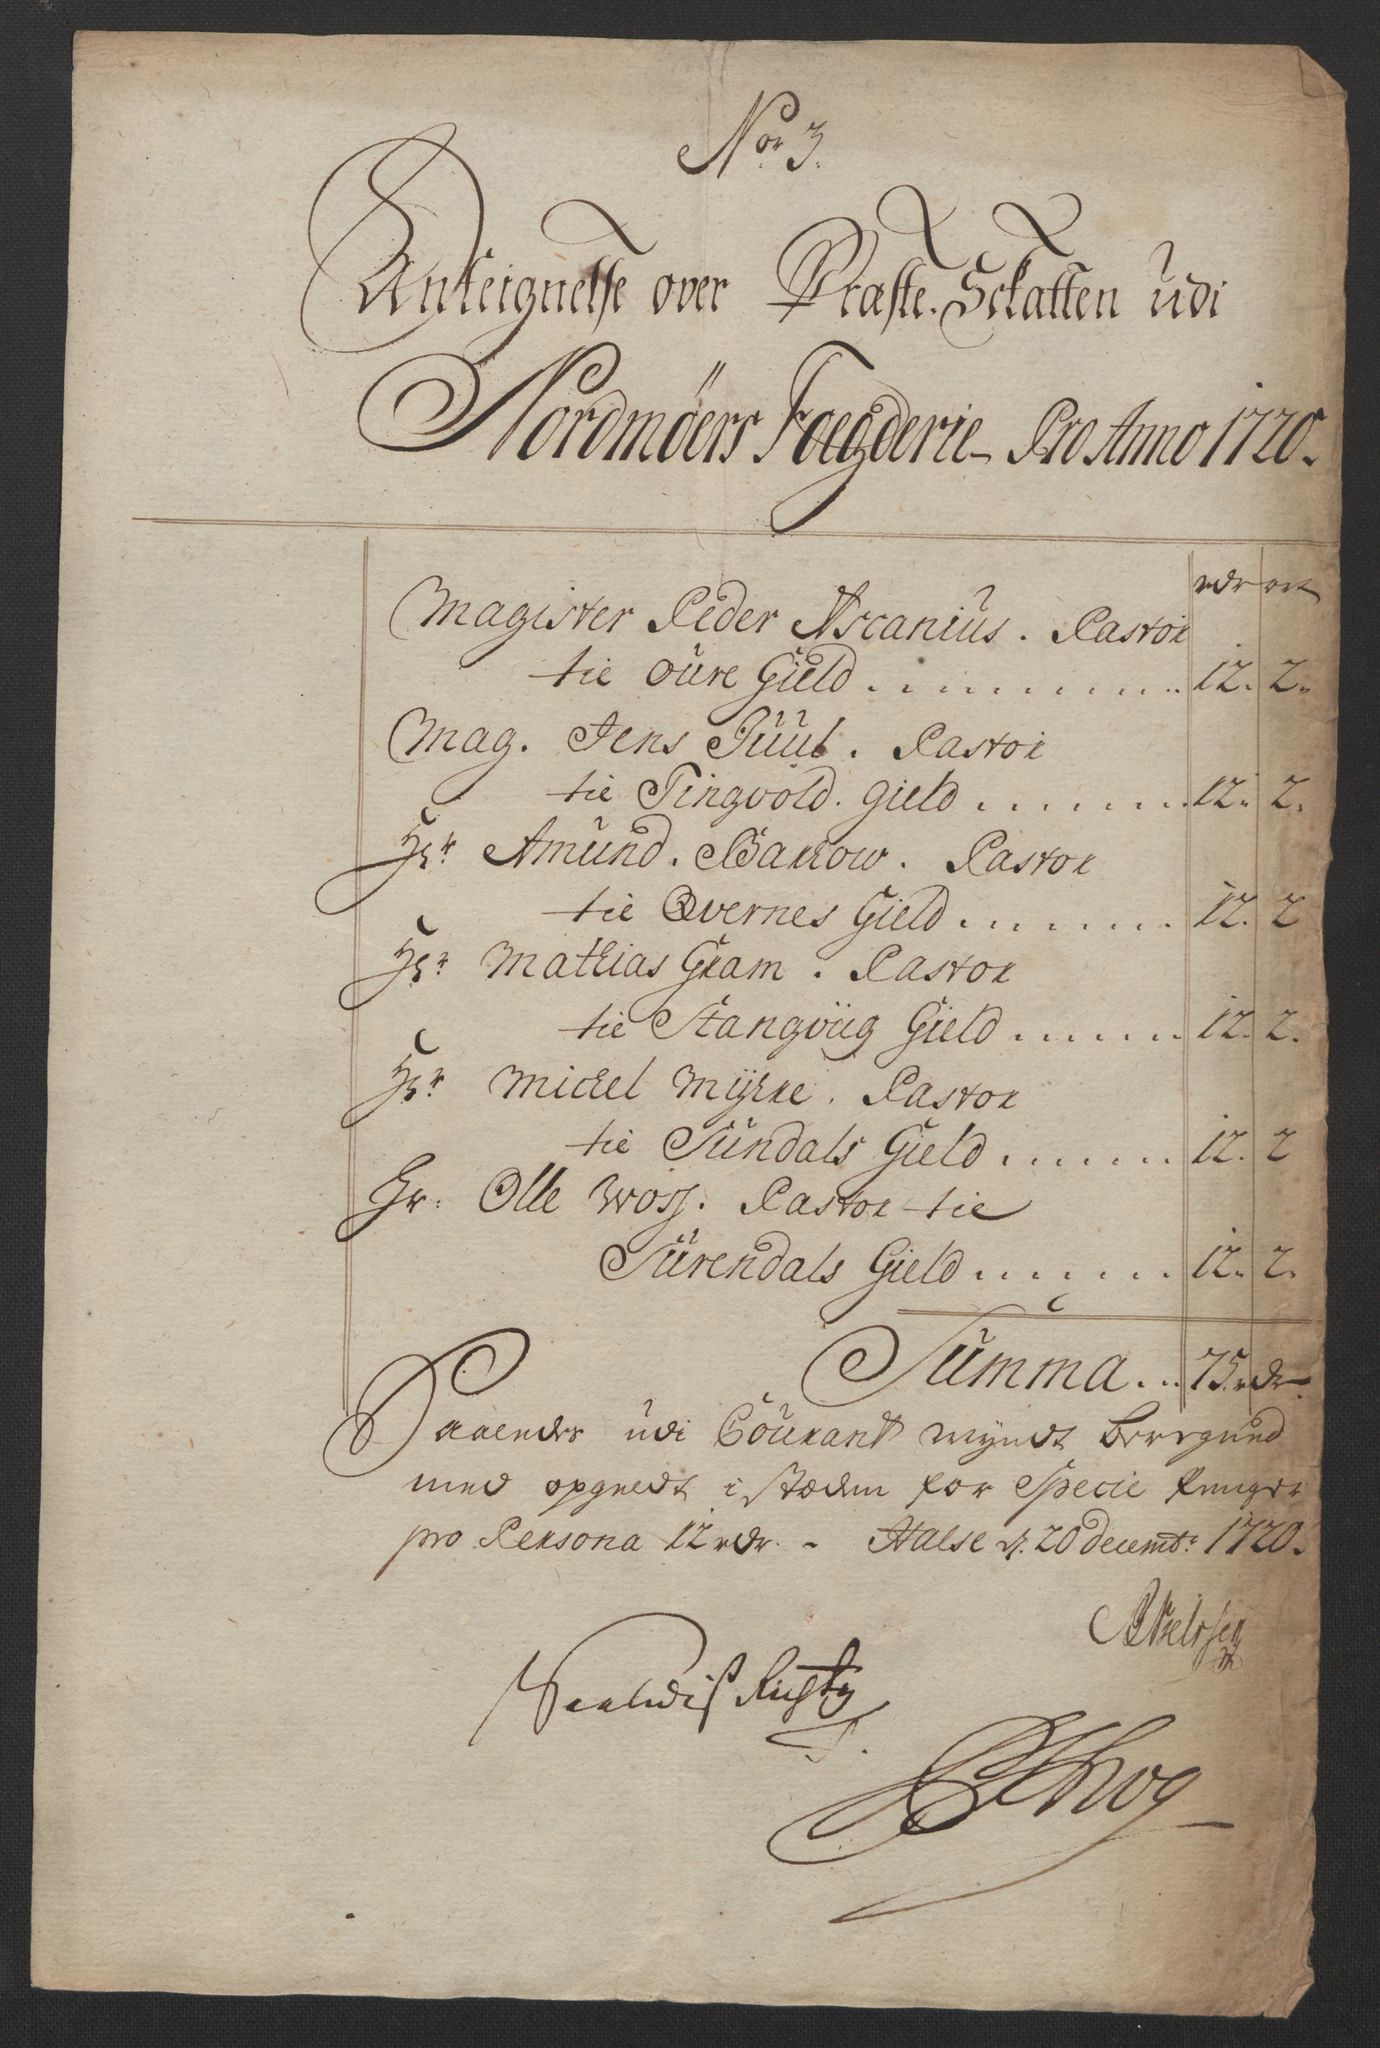 No. 3.
Anteignelse over Præste. Sckatten udi
Nordmöers Foegderie Pro Anno 1720.
rdr ort
Magister Peder Ascanius. Pastor
tie oure Gield . . . . . . . . . . 12. 2.
Mag. Jens Juul. Pastor
tie Tingvold. gield . . . . . . . 12. 2.
Hr. Amund. Barrow. Pastor
tie Qvernes Gield . . . . . . . 12. 2
Hr. Mathias Gram. Pastor
tie Stangviig Gield . . . . . . 12. 2.
Hr. Mickel Myhre. Pastor
tie Sundals Gield . . . . . . . 12. 2
Hr. Olle Woss. Pastor tie
Surendals Gield . . . . . . . 12. 2.
Summa . . 75 rdr
udi Courant myndt
med opgeldt i stæden for Specie Penger
pro Persona 12 rdr. - Halse d. 20 Decemb: 1720.